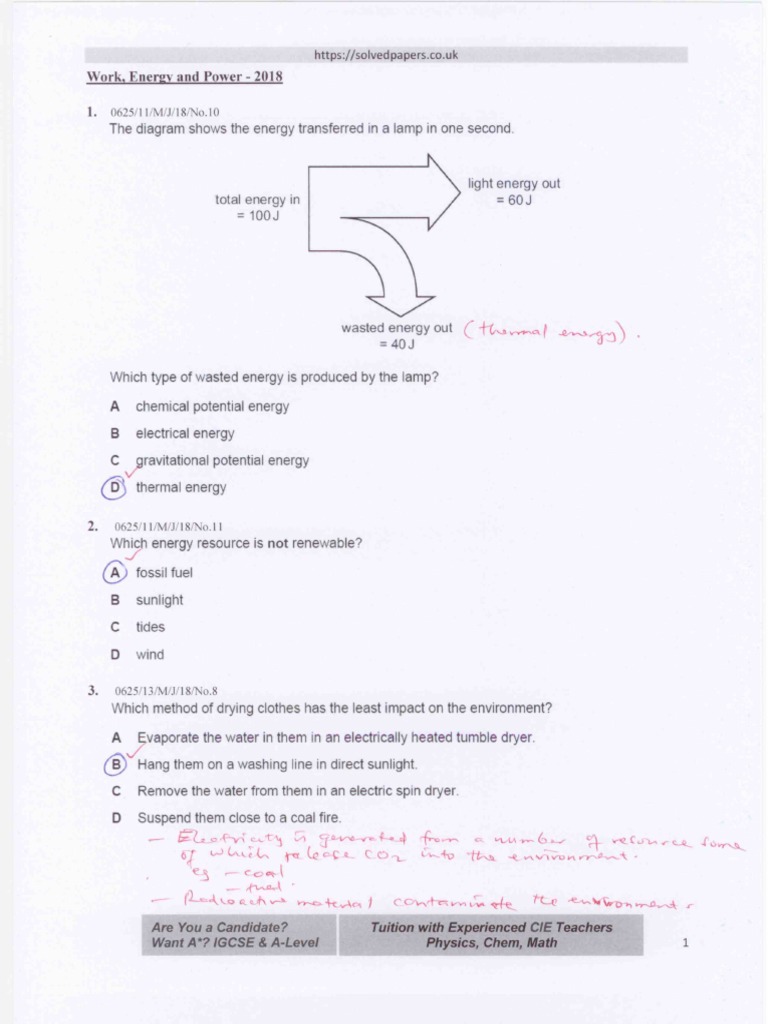 https://solvedpapers.co.uk
Work, Energy and Power - 2018
1. 0625/11/M/J/18/No.10
The diagram shows the energy transferred in a lamp in one second.
total energy in
= 100 J
light energy out
= 60 J
wasted energy out (thermal energy).
= 40 J
Which type of wasted energy is produced by the lamp?
A chemical potential energy
B electrical energy
C gravitational potential energy
D thermal energy
2. 0625/11/M/J/18/No.11
Which energy resource is not renewable?
A fossil fuel
B sunlight
C tides
D wind
3. 0625/13/M/J/18/No.8
Which method of drying clothes has the least impact on the environment?
A Evaporate the water in them in an electrically heated tumble dryer.
B Hang them on a washing line in direct sunlight.
C Remove the water from them in an electric spin dryer.
D Suspend them close to a coal fire.
– Electricity is generated from a number of resource some
of which release CO2 into the environment.
eg – coal
– fuel.
– Radioactive material contaminate the environment.
Are You a Candidate?
Want A*? IGCSE & A-Level
Tuition with Experienced CIE Teachers
Physics, Chem, Math
1